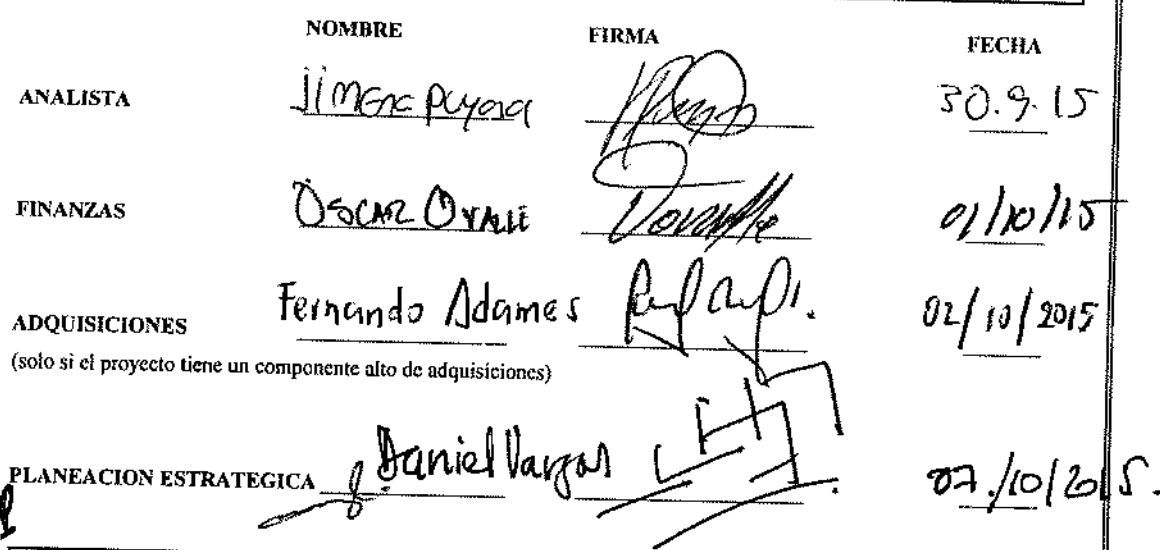 NOMBRE FIRMA FECHA
ANALISTA Jimena Puyana 30.9.15
FINANZAS OSCAR OVALLE 01/10/15
ADQUISICIONES Fernando Adames 02/10/2015
(solo si el proyecto tiene un componente alto de adquisiciones)
PLANEACION ESTRATEGICA Daniel Vargas 07./10/2015.